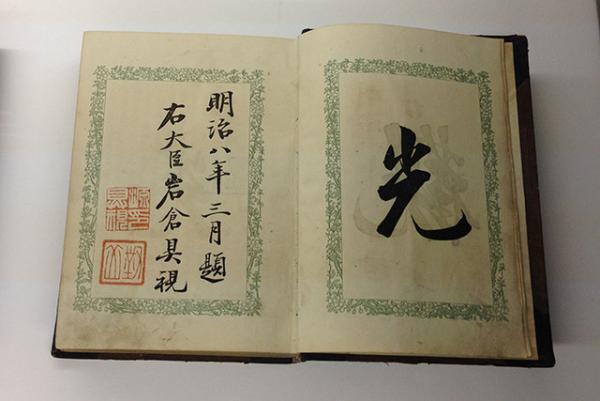 光
明治八年三月題
右大臣岩倉具視